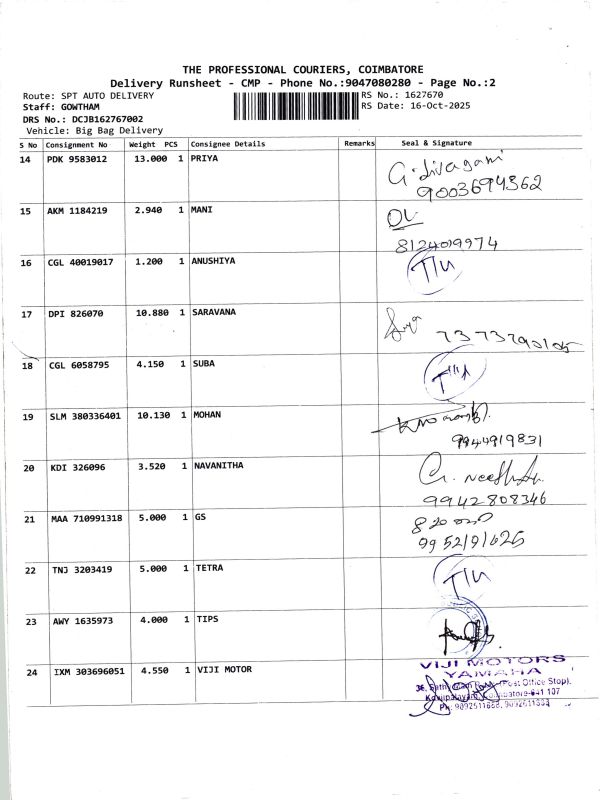 THE PROFESSIONAL COURIERS, COIMBATORE
Delivery Runsheet - CMP - Phone No.:9047080280 - Page No.:2
Route: SPT AUTO DELIVERY RS No.: 1627670
Staff: GOWTHAM RS Date: 16-Oct-2025
DRS No.: DCJB162767002
Vehicle: Big Bag Delivery
S No Consignment No Weight PCS Consignee Details Remarks Seal & Signature
14 PDK 9583012 13.000 1 PRIYA G. divagani
9003694362
15 AKM 1184219 2.940 1 MANI
8124019974
16 CGL 40019017 1.200 1 ANUSHIYA
17 DPI 826070 10.880 1 SARAVANA
18 CGL 6058795 4.150 1 SUBA
19 SLM 380336401 10.130 1 MOHAN
9944919831
20 KDI 326096 3.520 1 NAVANITHA
9942808346
21 MAA 710991318 5.000 1 GS
22 TNJ 3203419 5.000 1 TETRA
23 AWY 1635973 4.000 1 TIPS
24 IXM 303696051 4.550 1 VIJI MOTOR VIJI MOTORS
YAMAHA
(Post Office Stop),
Coimbatore-641 107